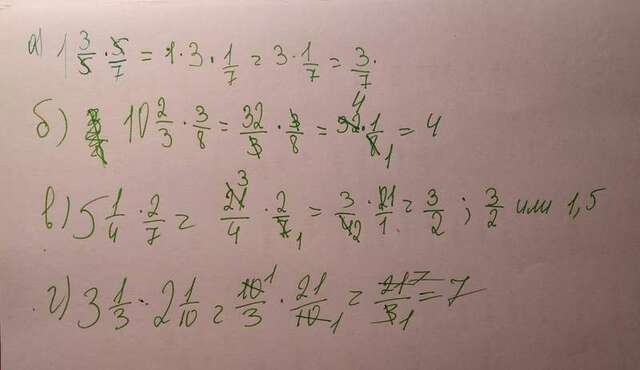 а) 1 3/5 · 5/7 = 1 · 3 · 1/7 = 3 · 1/7 = 3/7.
б) 10 2/3 · 3/8 = 32/3 · 3/8 = 32 4 · 1/8 1 = 4
в) 5 1/4 · 2/7 = 21 3/4 · 2/7 1 = 3/4 2 · 21/1 = 3/2 ; 3/2 или 1,5
г) 3 1/3 · 2 1/10 = 10 1/3 · 21/10 1 = 21 7/3 1 = 7